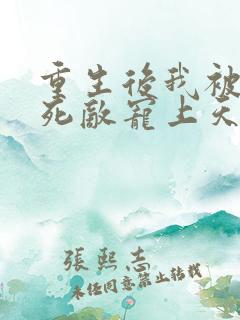 重生後我被
死敵寵上天
張熙志
未經同意禁止轉載